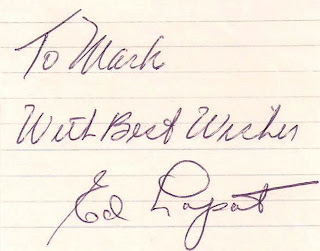 To Mark
With Best Wishes
Ed Lopat